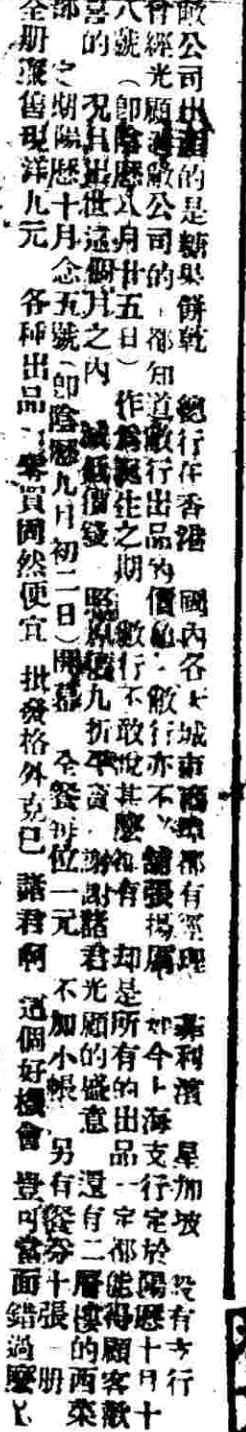 敝公司出的是糖果餅乾 總行在香港 國內各大城市商埠都有經理 菲利濱 星加坡 設有支行
曾經光顧過敝公司的 都知道敝行出品的價格 敝行亦不必鋪張揚厲 如今上海支行定於陽歷十月十
八號（卽陰歷八月廿五日）作為誕生之期 敝行不敢說甚麼 却是所有的出品一定都能得顧客歡
喜的 況且出世這個月之內 減低價錢 照原價九折平賣 謝謝諸君光顧的盛意 還有二層樓的西菜
部 定期陽歷十月念五號（卽陰歷九月初二日）開幕 全餐每位一元 不加小帳 另有餐券十張一册
全册現洋九元 各種出品 買固然便宜 批發格外克已 諸君啊 這個好機會 豈可當面錯過麼